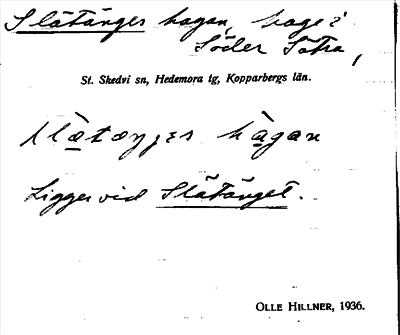 Slätänges hagan, hage i
Söder Sätra,
St. Skedvi sn, Hedemora tg, Kopparbergs län.
hagan
Ligger vid Slätänget.
OLLE HILLNER, 1936.